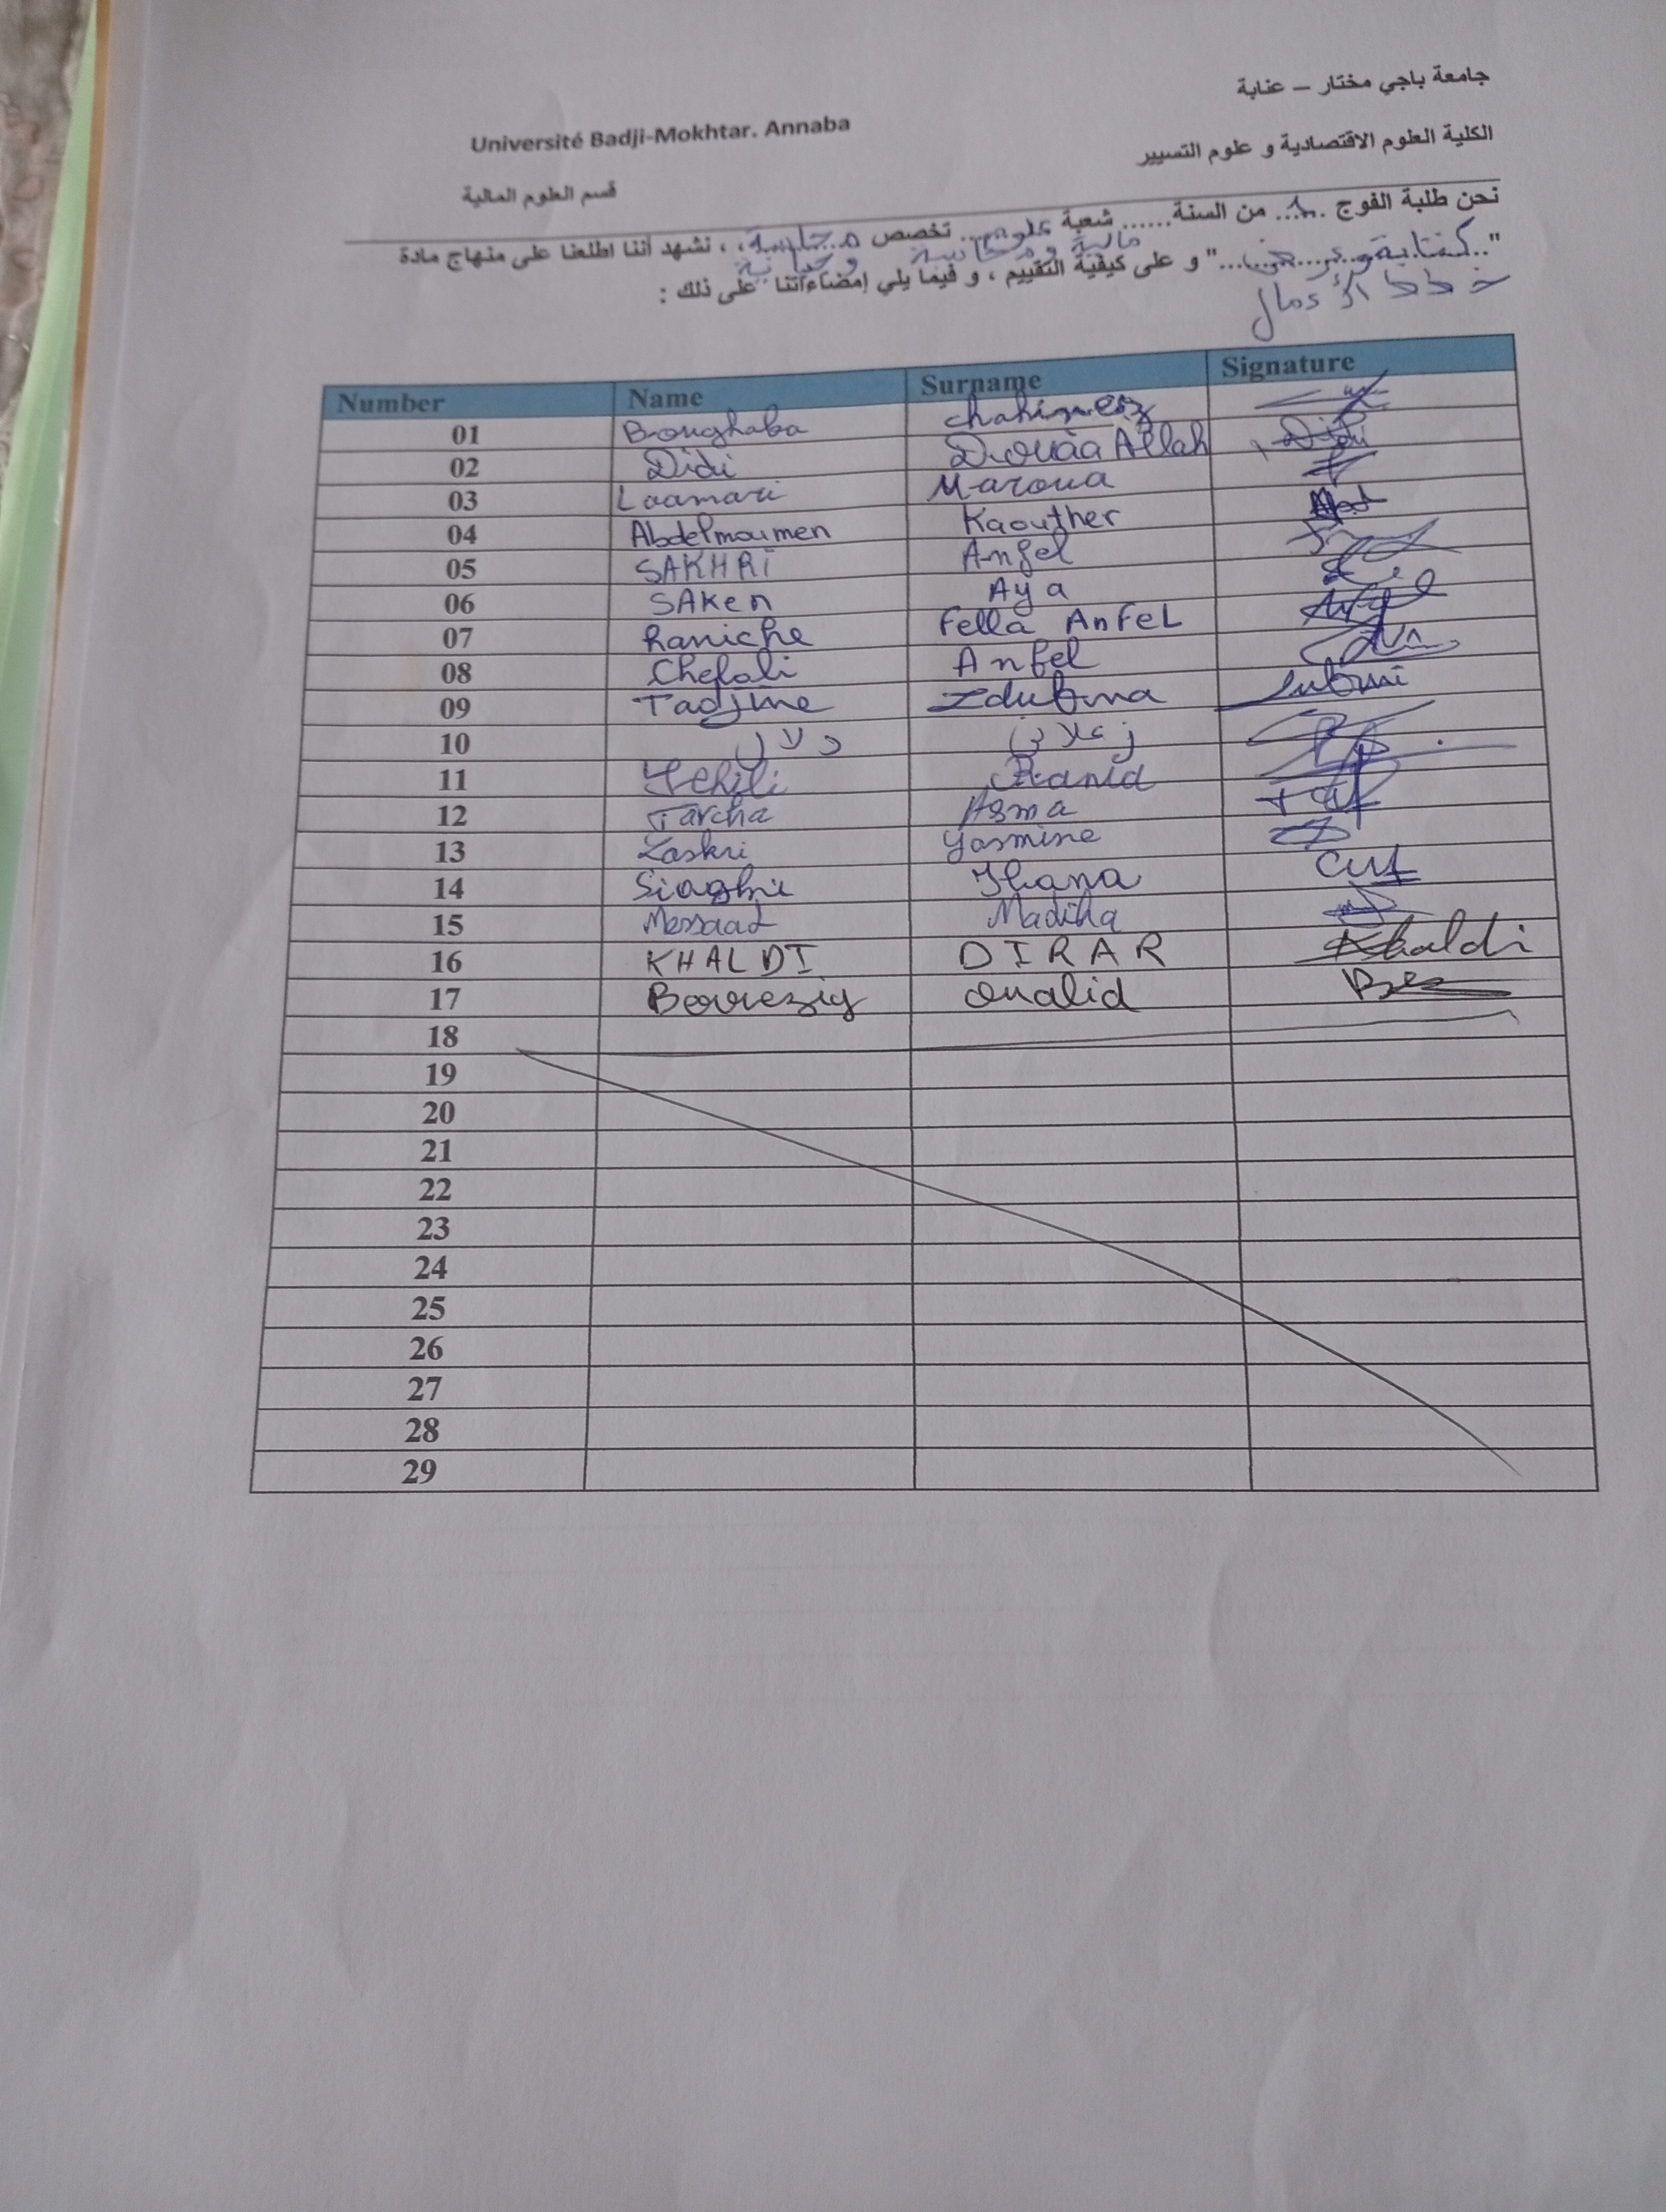 جامعة باجي مختار – عنابة
Université Badji-Mokhtar. Annaba
الكلية العلوم الاقتصادية و علوم التسيير
قسم العلوم المالية
نحن طلبة الفوج ..1.. من السنة...... شعبة علوم... تخصص محاسبة، ، نشهد أننا اطلعنا على منهاج مادة
مالية ومحاسبة
"..كتابة و عرض......" و على كيفية التقييم ، و فيما يلي إمضاءاتنا على ذلك :
خطط الأعمال
Number Name Surname Signature
01 Boughaba chahinez
02 Didi Douàa Allah Didi
03 Laamari Maroua
04 Abdelmoumen Kaouther
05 SAKHRi Anfel
06 SAKen Aya
07 Raniche Fella AnFeL
08 Chefali Anfel
09 Tadjine
10 دلال زعلاني
11 Rania
12 Tarcha Asma
13 Laskri Yasmine
14 Siaghi Jhana
15 Messaad Madiha
16 KHALDI DIRAR Khaldi
17 oualid
18
19
20
21
22
23
24
25
26
27
28
29